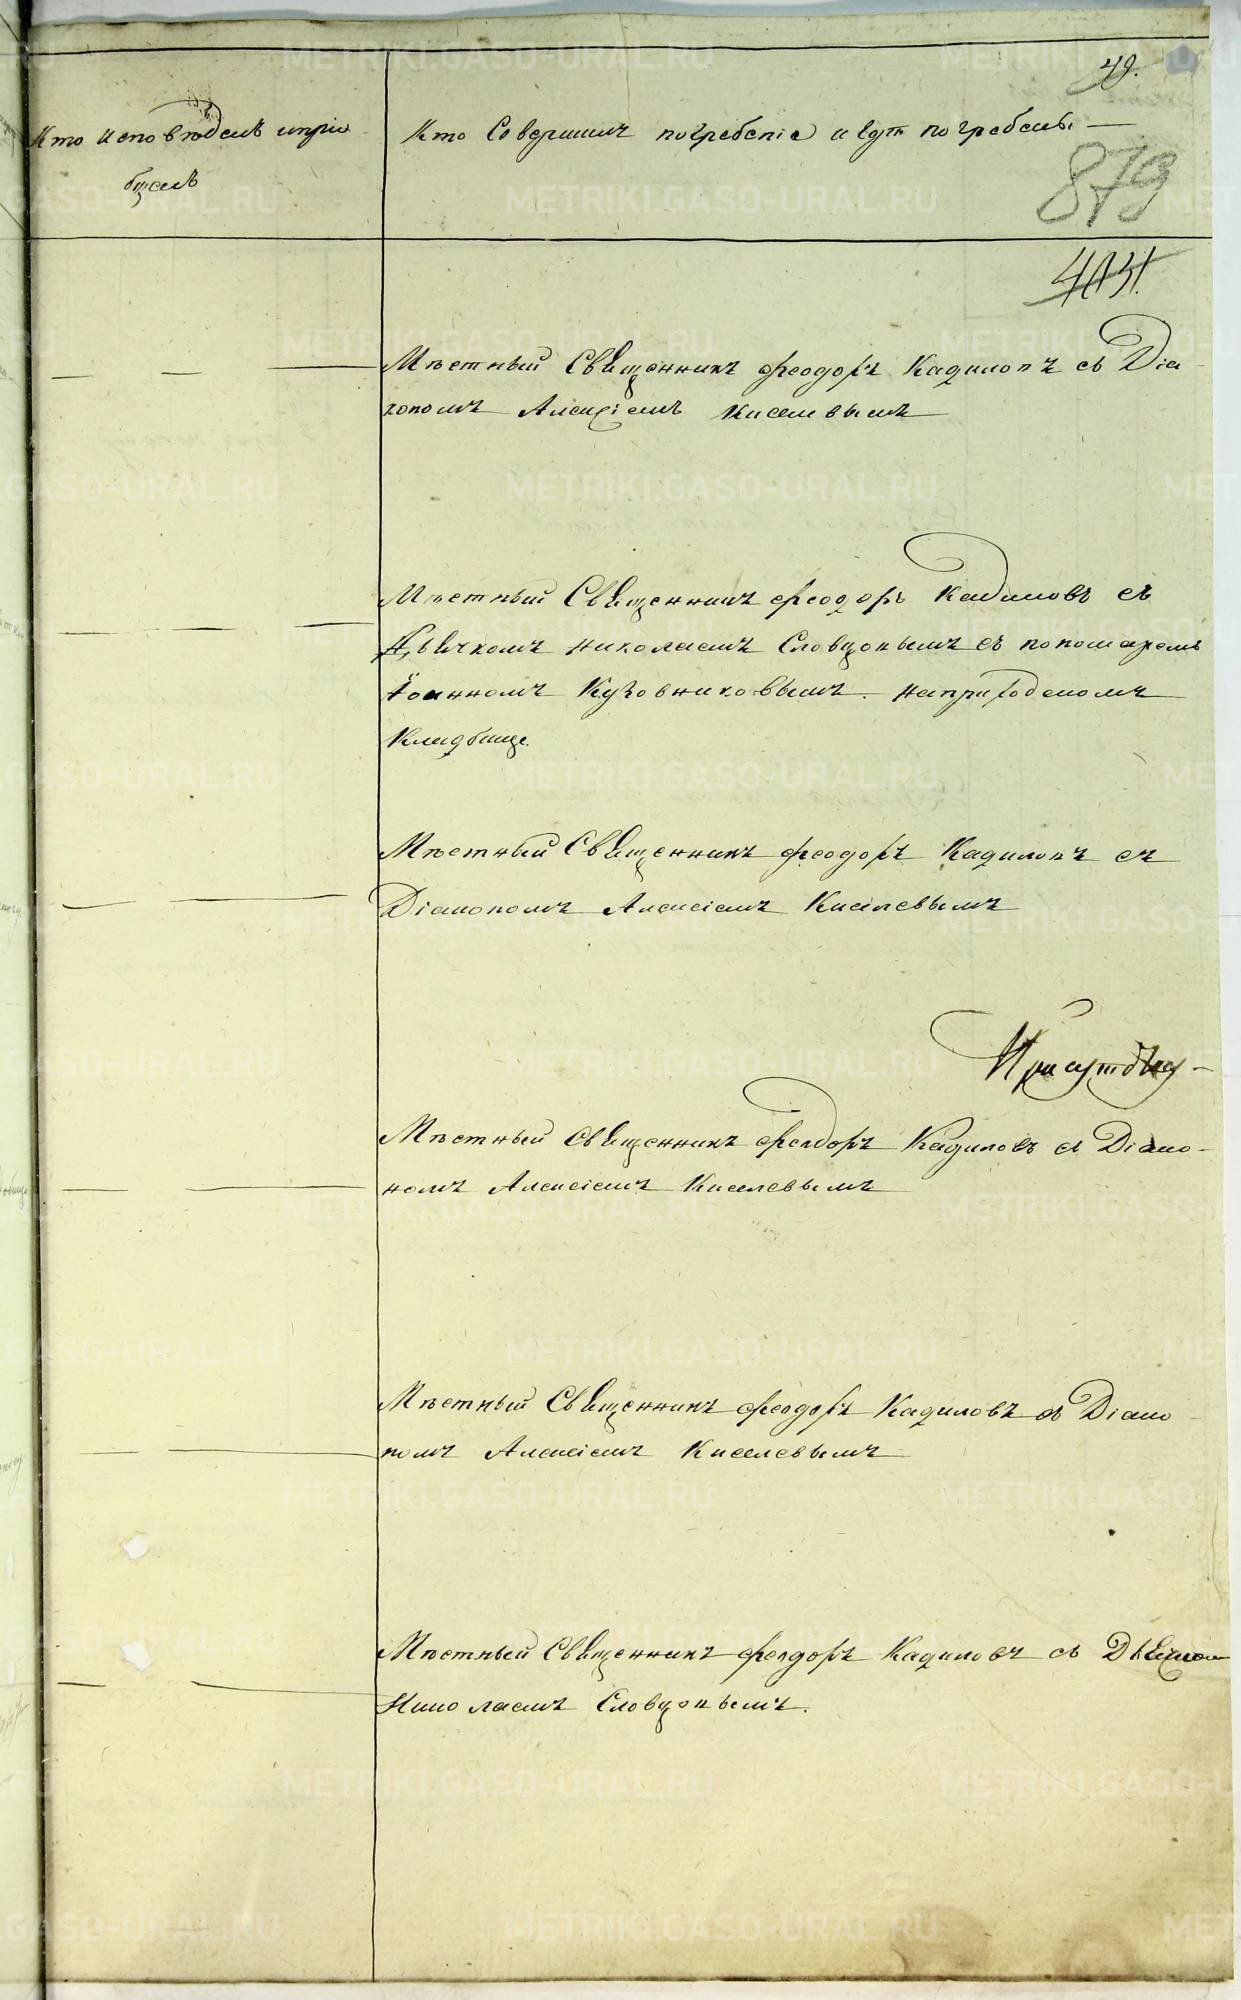 49.
Кто исповѣдалъ и прiо
бщалъ
Кто Совершилъ погребенiе и гдѣ погребены
879
Мѣстный Священникъ Феодоръ Кадиловъ съ Дiа
кономъ Алексiемъ Киселевымъ
Мѣстный Священникъ Феодоръ Кадиловъ съ
Дьячкомъ Николаемъ Словцовымъ съ пономаремъ
Iоанномъ Кузовниковымъ. на приходскомъ
Кладбище.
Мѣстный Священникъ Феодоръ Кадиловъ съ
Дiакономъ Алексiемъ Киселевымъ
Мѣстный Священникъ Феодоръ Кадиловъ съ Дiако-
номъ Алексiемъ Киселевымъ
Мѣстный Священникъ Феодоръ Кадиловъ съ Дiако
номъ Алексiемъ Киселевымъ
Мѣстный Священникъ Феодоръ Кадиловъ съ Дьячком
Николаемъ Словцовымъ.
METRIKI.GASO-URAL.RU